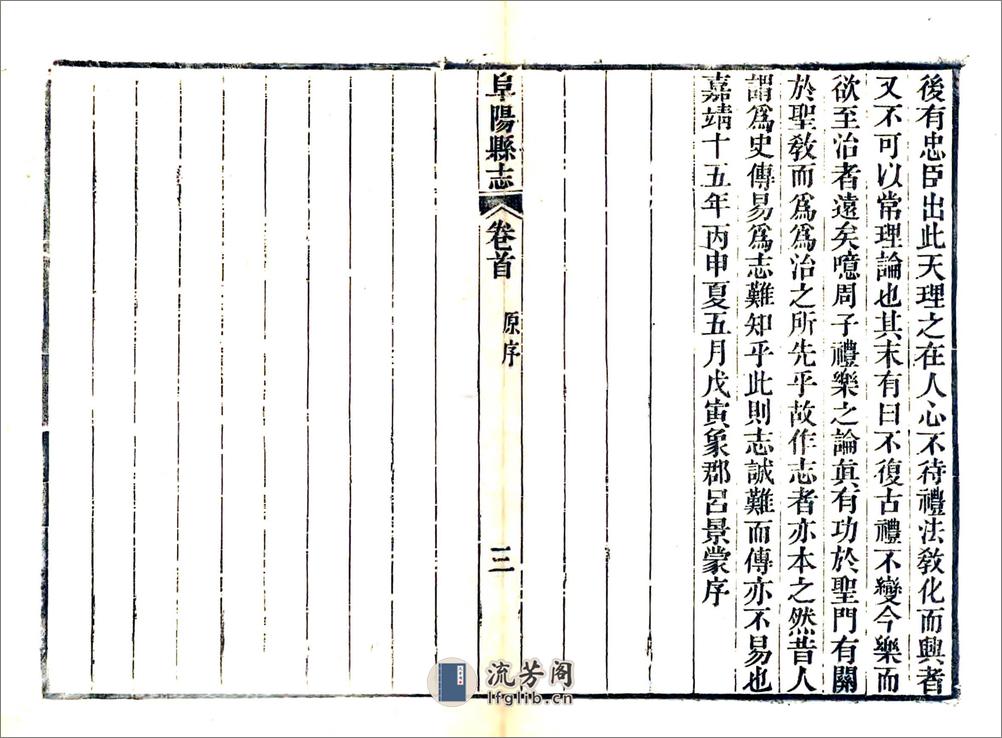 後有忠臣出此天理之在人心不待禮法敎化而興者
又不可以常理論也其末有曰不復古禮不變今樂而
欲至治者遠矣噫周子禮樂之論眞有功於聖門有關
於聖敎而爲爲治之所先乎故作志者亦本之然昔人
謂爲史傳易爲志難知乎此則志誠難而傳亦不易也
嘉靖十五年丙申夏五月戊寅象郡呂景蒙序
阜陽縣志
卷首
原序
三
流芳阁
lfglib.com